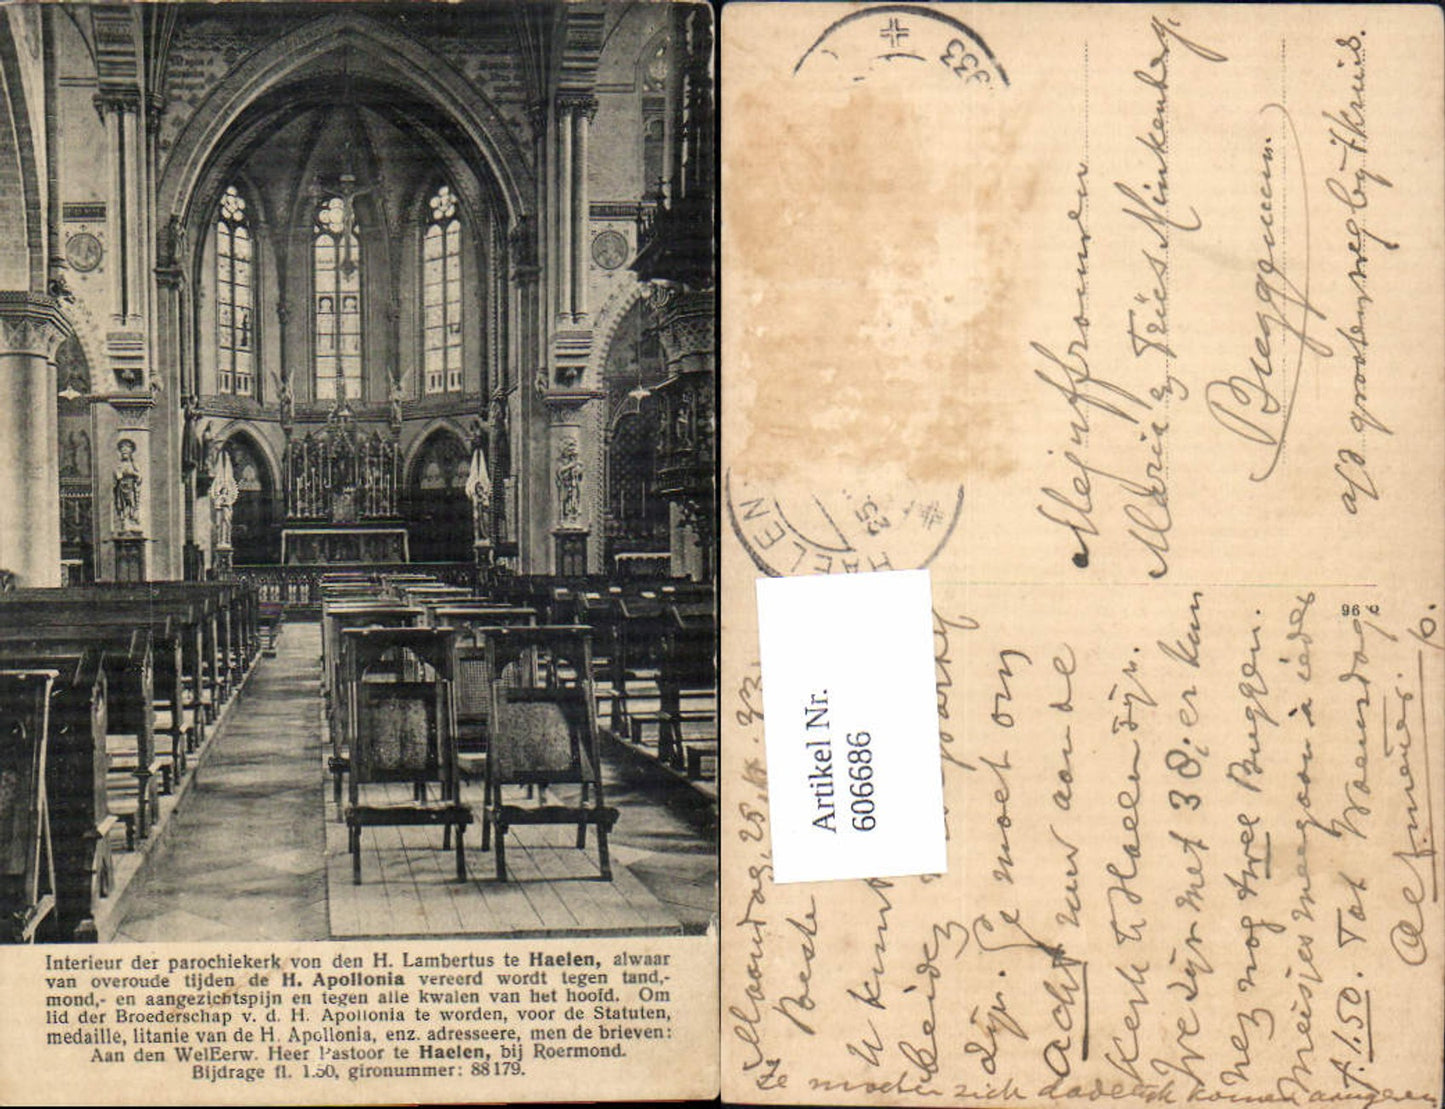 Interieur der parochiekerk von den H. Lambertus te Haelen, alwaar
van overoude tijden de H. Apollonia vereerd wordt tegen tand,-
mond,- en aangezichtspijn en tegen alle kwalen van het hoofd. Om
lid der Broederschap v. d. H. Apollonia te worden, voor de Statuten,
medaille, litanie van de H. Apollonia, enz. adresseere, men de brieven:
Aan den WelEerw. Heer Pastoor te Haelen, bij Roermond.
Bijdrage fl. 1.50, gironummer: 88179.
933
25
Artikel Nr.
606686
Mejuffrouwen
Maria &
Buggenum.
a/d grootenweg bij 't kruis.
96
Maandag, 25
Beste
U kunt
beide
zijn. Je moet om
acht uur aan de
Kerk te Haelen zijn.
We zijn met 38; er kan
nog twee Buggen.
meisjes meegaan à ieder
f. 1.50. Tot Woensdag.
Ze moeten zich dadelijk komen aangeven